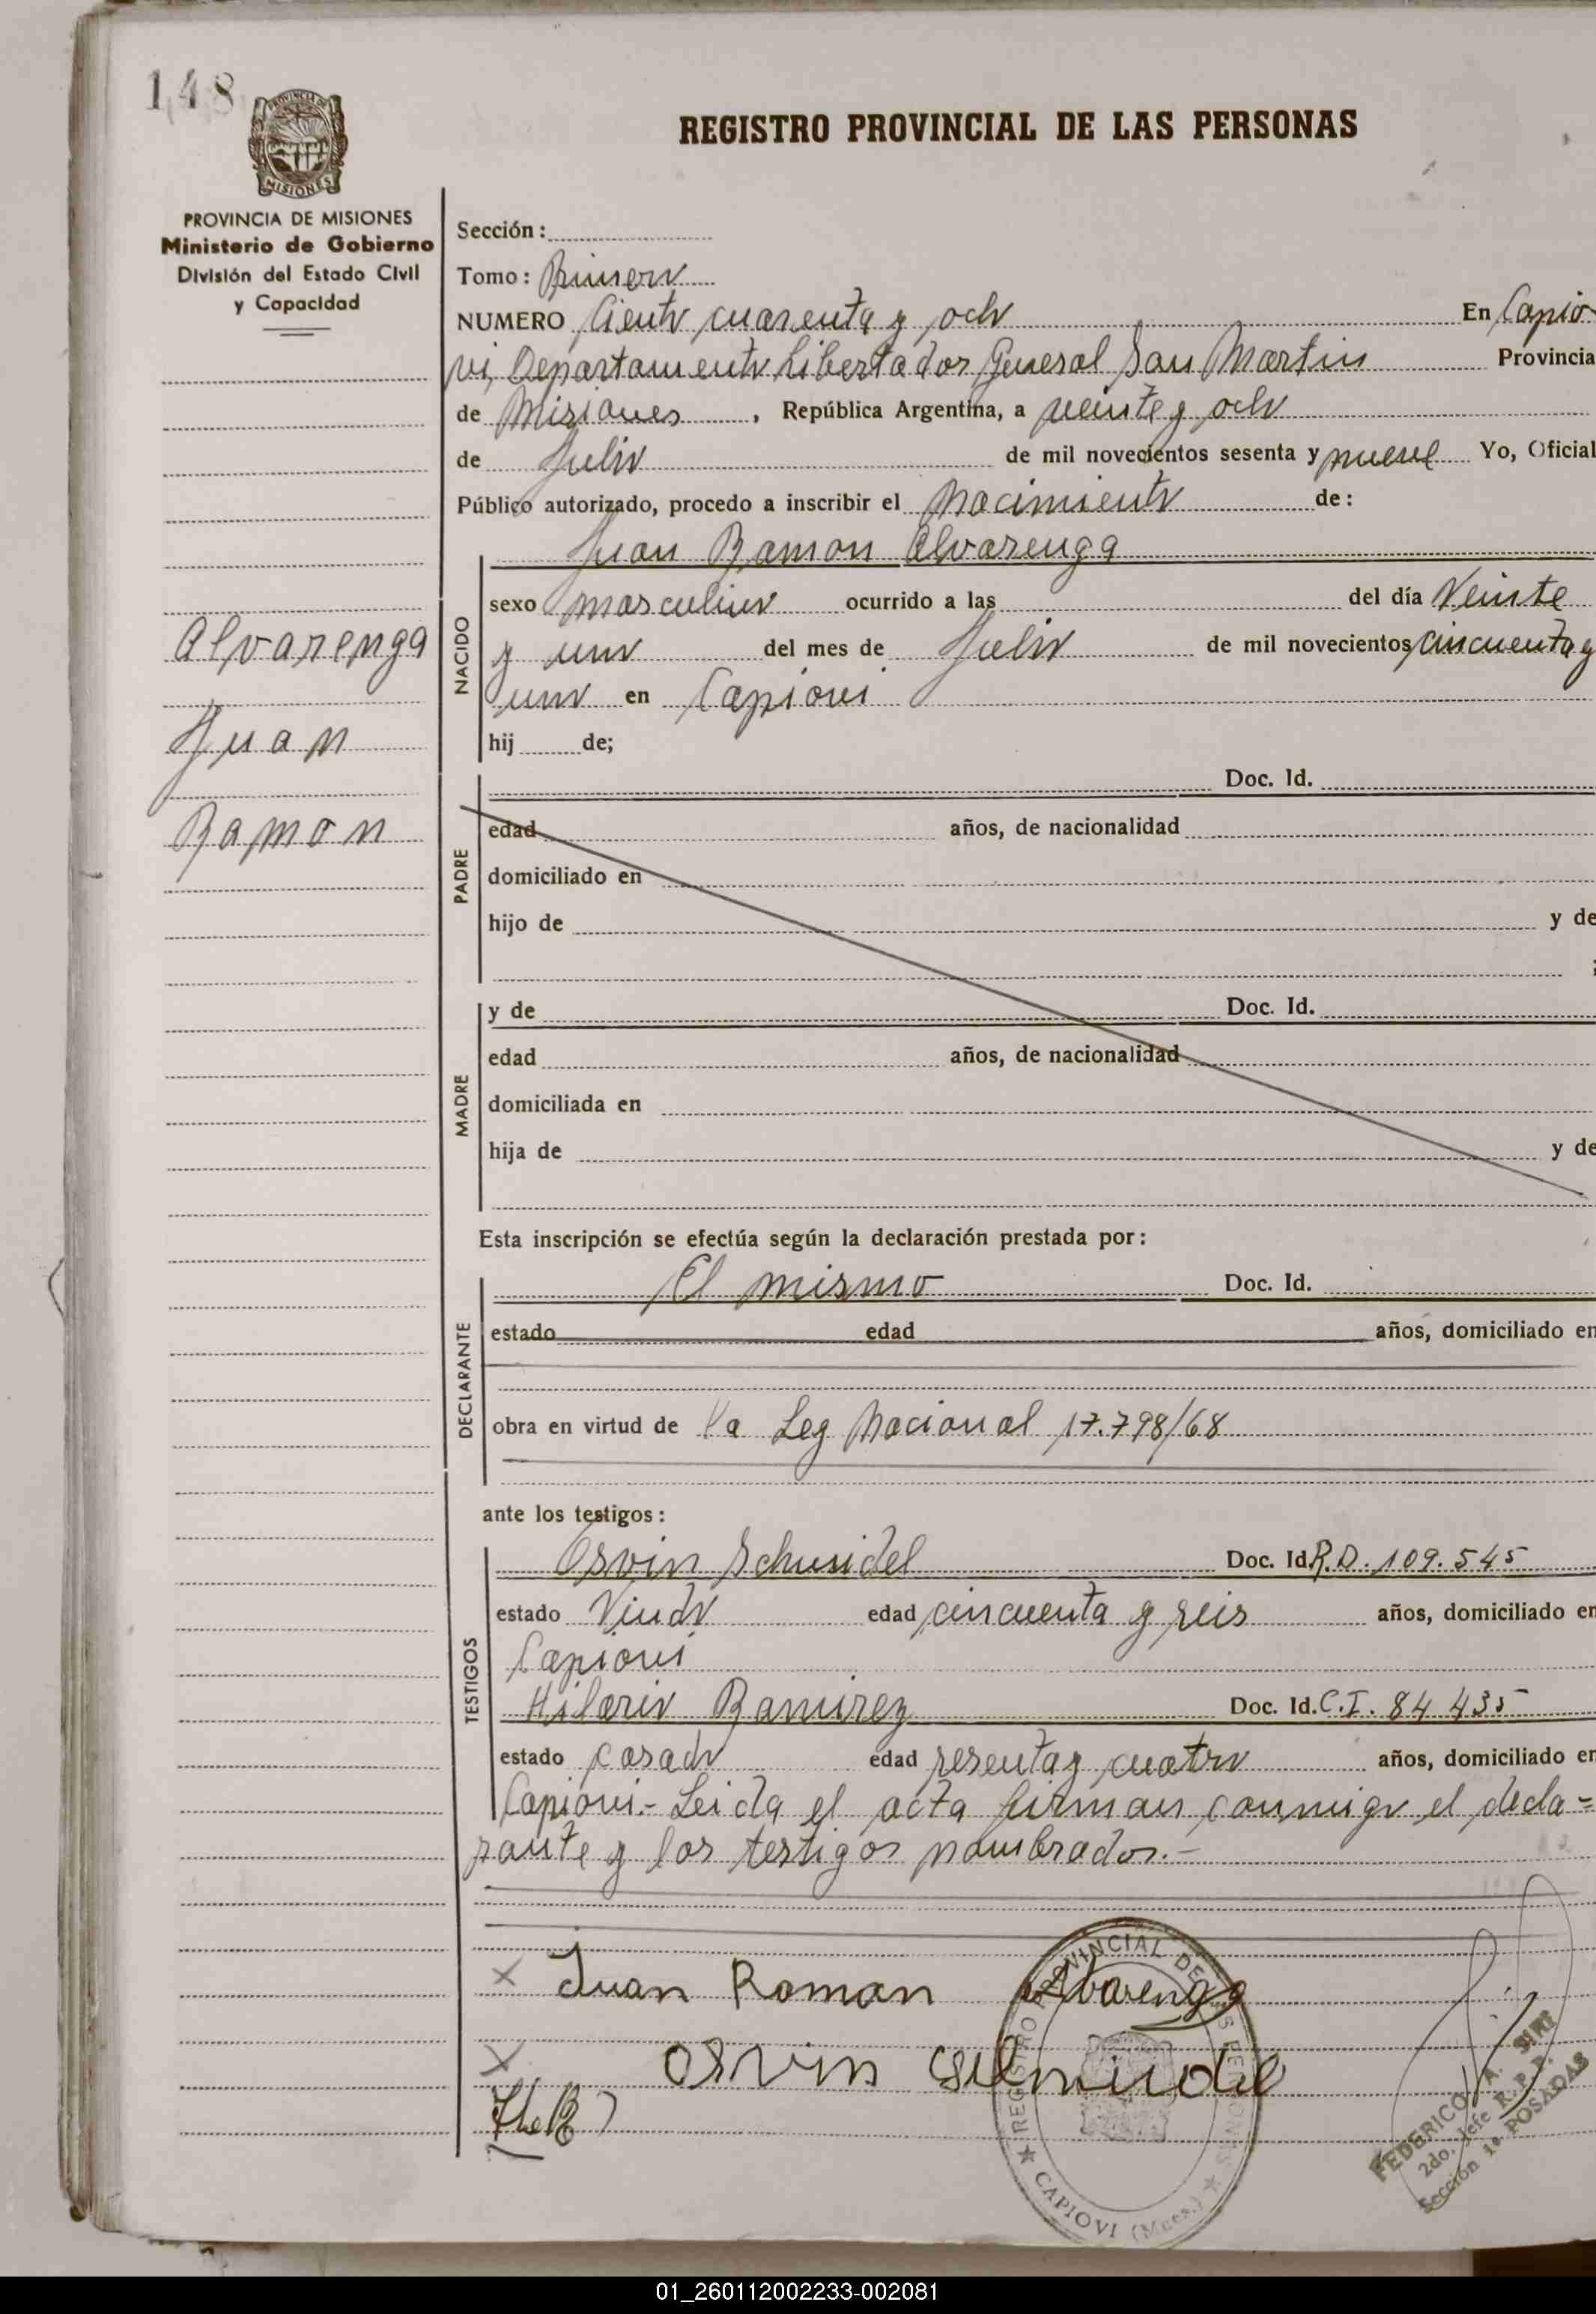 148
PROVINCIA DE
MISIONES
REGISTRO PROVINCIAL DE LAS PERSONAS
PROVINCIA DE MISIONES
Ministerio de Gobierno
División del Estado Civil
y Capacidad
Sección:
Tomo: Primero
NUMERO Ciento cuarenta y ocho En Capio-
vi, Departamento Libertador General San Martin Provincia
de Misiones, República Argentina, a veinte y ocho
de Julio de mil novecientos sesenta y nueve Yo, Oficial
Público autorizado, procedo a inscribir el Nacimiento de:
Juan Ramon Alvarenga
NACIDO
sexo masculino ocurrido a las del día Veinte
y uno del mes de Julio de mil novecientos cincuenta y
uno en Capiovi
hij de;
Alvarenga
Juan
Ramon
PADRE
Doc. Id.
edad años, de nacionalidad
domiciliado en
hijo de y de
;
MADRE
y de Doc. Id.
edad años, de nacionalidad
domiciliada en
hija de y de
Esta inscripción se efectúa según la declaración prestada por:
DECLARANTE
El mismo Doc. Id.
estado edad años, domiciliado en
obra en virtud de la Ley Nacional 17.798/68
ante los testigos:
TESTIGOS
Osvin Schneidel Doc. Id. R.D. 109.545
estado Viudo edad cincuenta y seis años, domiciliado en
Capiovi
Hilario Ramirez Doc. Id. C.I. 84 435
estado casado edad sesenta y cuatro años, domiciliado en
Capiovi.- Leida el acta firman conmigo el decla=
rante y los testigos nombrados.-
x Juan Roman Albarenga
x Osvin
REGISTRO PROVINCIAL DE LAS PERSONAS
CAPIOVI (Mnes.)
FEDERICO A. SIRI
2do. Jefe R.P.P.
Sección 1ª POSADAS
01_260112002233-002081